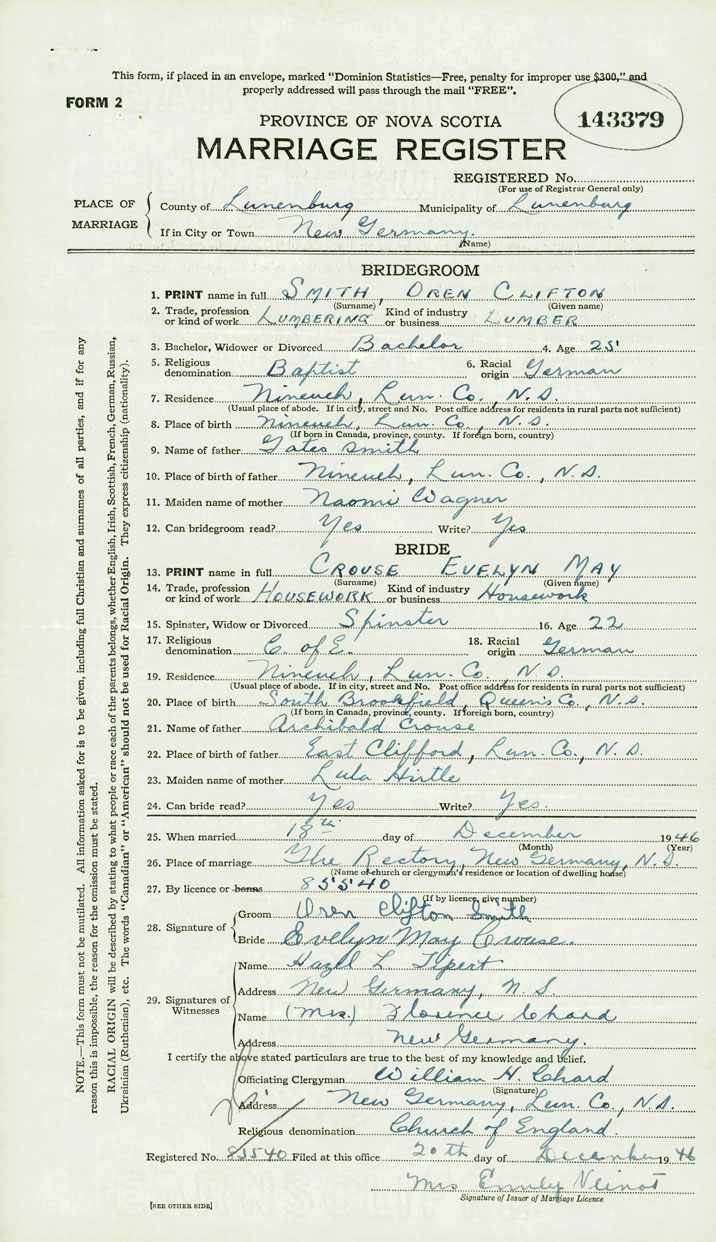 This form, if placed in an envelope, marked “Dominion Statistics—Free, penalty for improper use $300,” and
properly addressed will pass through the mail “FREE”.
FORM 2
143379
PROVINCE OF NOVA SCOTIA
MARRIAGE REGISTER
REGISTERED No.
(For use of Registrar General only)
PLACE OF MARRIAGE
County of Lunenburg Municipality of Lunenburg
If in City or Town New Germany.
(Name)
BRIDEGROOM
1. PRINT name in full SMITH, OREN CLIFTON
(Surname) (Given name)
2. Trade, profession or kind of work LUMBERING Kind of industry or business LUMBER
3. Bachelor, Widower or Divorced Bachelor 4. Age 25
5. Religious denomination Baptist 6. Racial origin German
7. Residence Nineveh, Lun. Co., N.S.
(Usual place of abode. If in city, street and No. Post office address for residents in rural parts not sufficient)
8. Place of birth Nineveh, Lun. Co., N.S.
(If born in Canada, province, county. If foreign born, country)
9. Name of father Gates Smith
10. Place of birth of father Nineveh, Lun. Co., N.S.
11. Maiden name of mother Naomi Wagner
12. Can bridegroom read? Yes Write? Yes
BRIDE
13. PRINT name in full CROUSE EVELYN MAY
(Surname) (Given name)
14. Trade, profession or kind of work HOUSEWORK Kind of industry or business Housework
15. Spinster, Widow or Divorced Spinster 16. Age 22
17. Religious denomination C. of E. 18. Racial origin German
19. Residence Nineveh, Lun. Co., N.S.
(Usual place of abode. If in city, street and No. Post office address for residents in rural parts not sufficient)
20. Place of birth South Brookfield, Queen's Co., N.S.
(If born in Canada, province, county. If foreign born, country)
21. Name of father Archibald Crouse
22. Place of birth of father East Clifford, Lun. Co., N.S.
23. Maiden name of mother Lula Hirtle
24. Can bride read? Yes Write? Yes.
25. When married 18th day of December 1946
(Month) (Year)
26. Place of marriage The Rectory, New Germany, N.S.
(Name of church or clergyman's residence or location of dwelling house)
27. By licence or banns 85540
(If by licence, give number)
28. Signature of
Groom Oren Clifton Smith
Bride Evelyn May Crouse.
29. Signatures of Witnesses
Name Hazel L
Address New Germany, N.S
Name (Mrs.) Florence Chard
Address New Germany.
I certify the above stated particulars are true to the best of my knowledge and belief.
Officiating Clergyman William H. Chard
(Signature)
Address New Germany, Lun. Co., N.S.
Religious denomination Church of England.
Registered No. 85540 Filed at this office 20th day of December 1946
Mrs Emily
Signature of Issuer of Marriage Licence
[SEE OTHER SIDE]
NOTE.—This form must not be mutilated. All information asked for is to be given, including full Christian and surnames of all parties, and if for any
reason this is impossible, the reason for the omission must be stated.
RACIAL ORIGIN will be described by stating to what people or race each of the parents belongs, whether English, Irish, Scottish, French, German, Russian,
Ukrainian (Ruthenian), etc. The words “Canadian” or “American” should not be used for Racial Origin. They express citizenship (nationality).